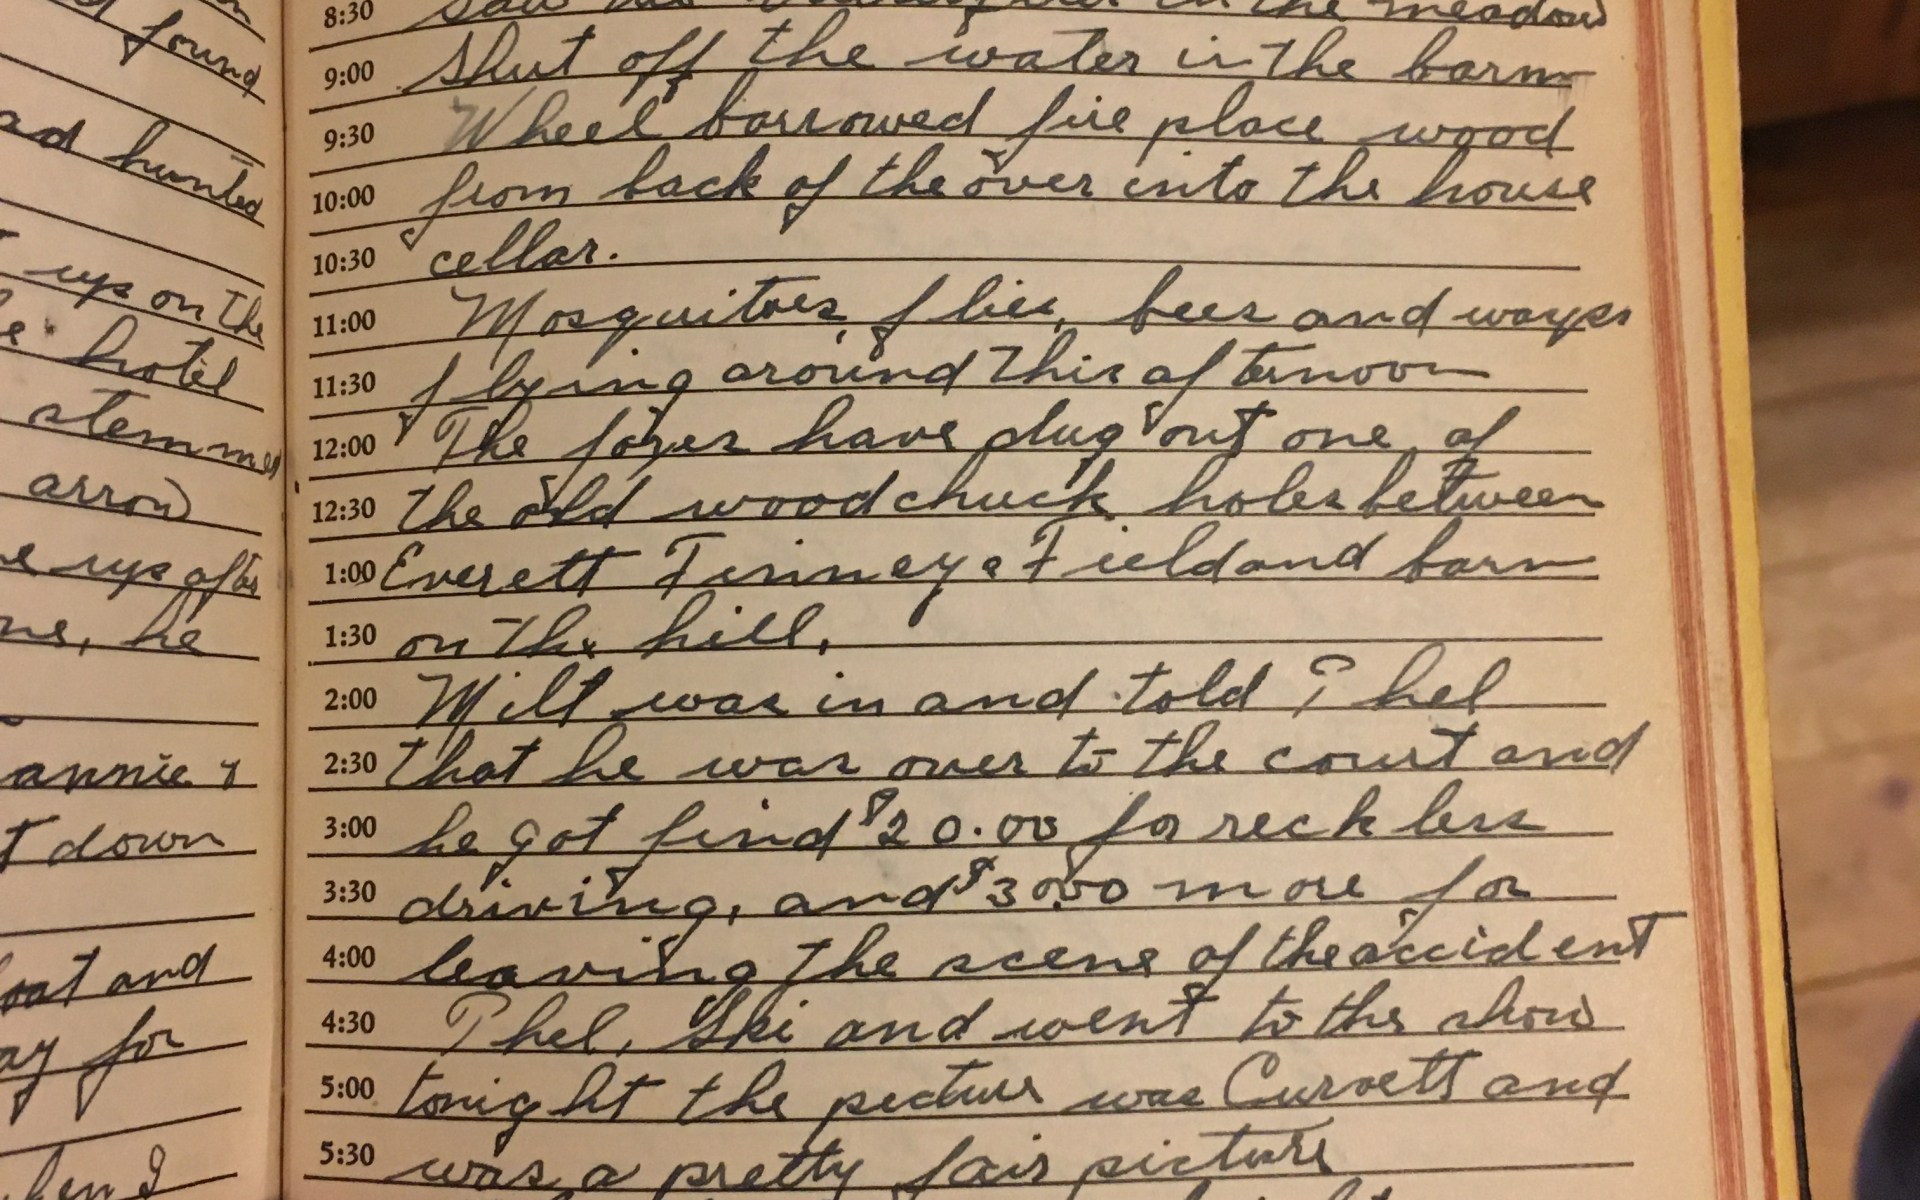 found
ad hunted
up on the
hotel
stemmed
arrow
up after
he
annie &
t down
oat and
ay for
hen I
8:30 in the meadow
9:00 Shut off the water in the barn
9:30 Wheel barrowed fire place wood
10:00 from back of the over into the house
10:30 cellar.
11:00 Mosquitoes, flies, bees and wasps
11:30 flying around this afternoon
12:00 The foxes have dug out one of
12:30 the old woodchuck holes between
1:00 Everett Finney Field and barn
1:30 on the hill,
2:00 Milt was in and told Phel
2:30 that he was over to the court and
3:00 he got find $20.00 for reckless
3:30 driving, and $30.00 more for
4:00 leaving the scene of the accident
4:30 Phel, Ski and went to the show
5:00 tonight the picture was Curvett and
5:30 was a pretty fair picture